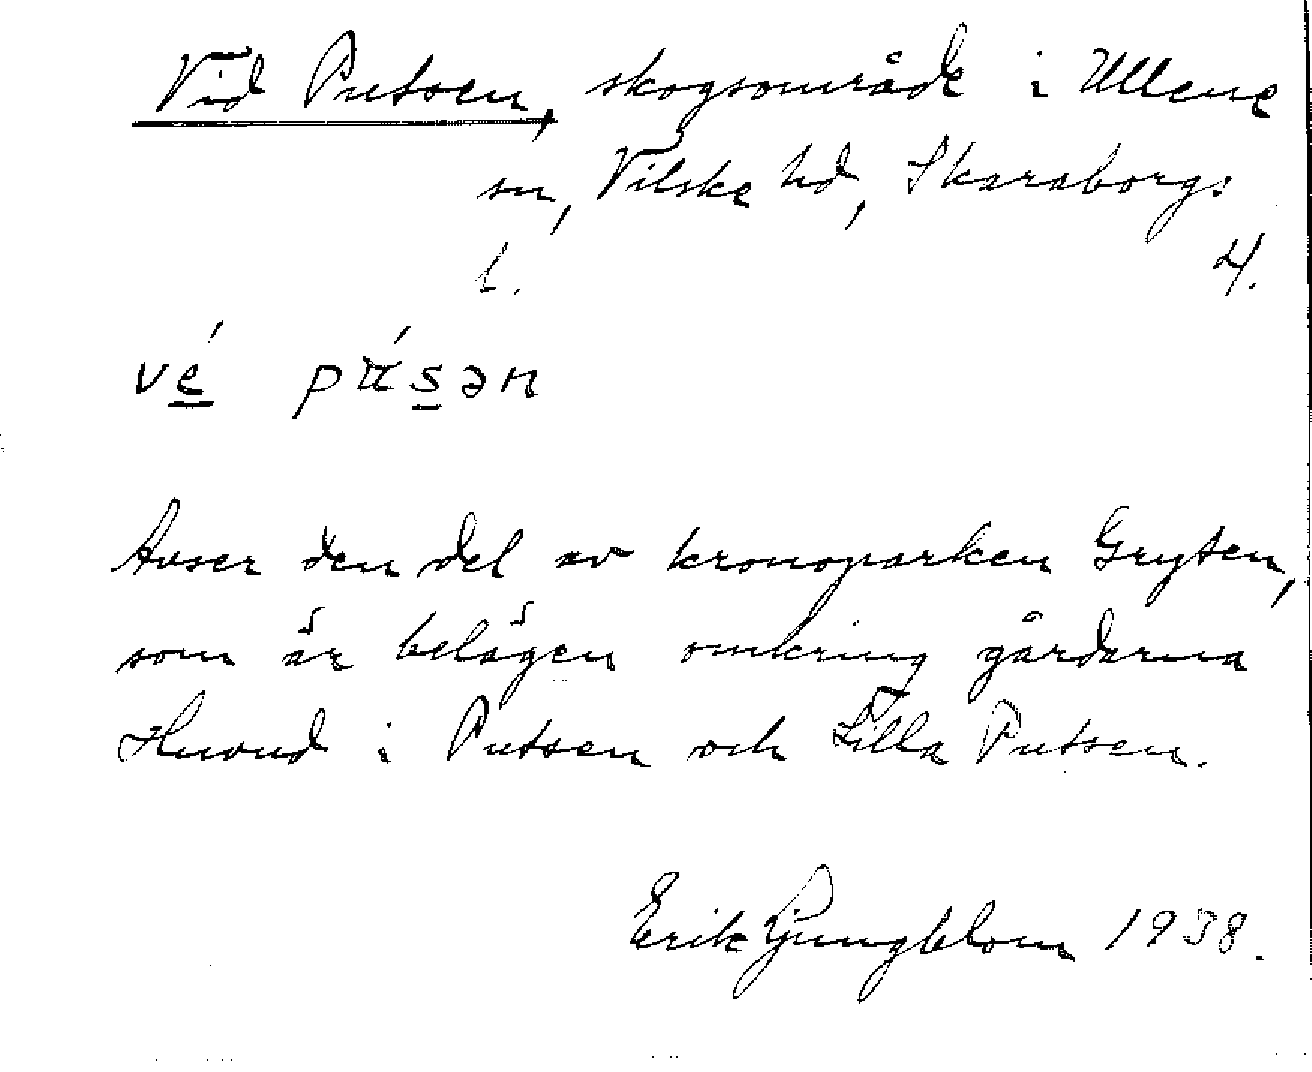 Vid Putsen, skogsområde i Ullene
sn, Vilske hd, Skaraborgs
l. 4.
vé pú́sən
Avser den del av kronoparken Gryten,
som är belägen omkring gårdarna
Huvud i Putsen och Lilla Putsen.
Erik Ljungblom 1938.